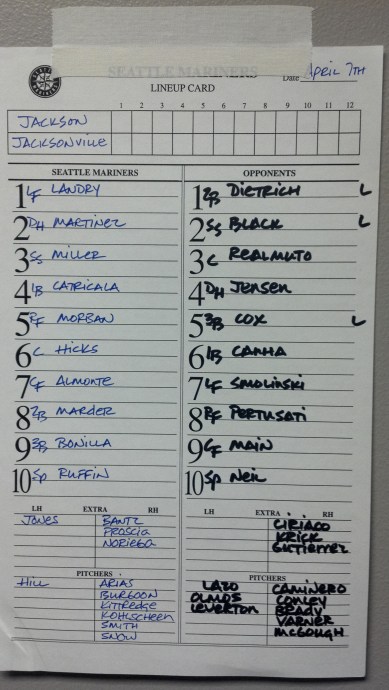 SEATTLE MARINERS
LINEUP CARD
Date APRIL 7TH
1 2 3 4 5 6 7 8 9 10 11 12
JACKSON
JACKSONVILLE
SEATTLE MARINERS
1 LF LANDRY
2 DH MARTINEZ
3 SS MILLER
4 1B CATRICALA
5 RF MORBAN
6 C HICKS
7 CF ALMONTE
8 2B MARDER
9 3B BONILLA
10 SP RUFFIN
LH EXTRA RH
JONES BANTZ
PROSCIA
NORIEGA
PITCHERS
HILL ARIAS
BURGOON
KITTREDGE
KOHLSCHEEN
SMITH
SNOW
OPPONENTS
1 2B DIETRICH L
2 SS BLACK L
3 C REALMUTO
4 DH JENSEN
5 3B COX L
6 1B CANHA
7 LF SMOLINSKI
8 RF PERTUSATI
9 CF MAIN
10 SP NEIL
LH EXTRA RH
CIRIACO
KRICK
GUTIERREZ
PITCHERS
LAZO CAMINERO
OLMOS CONLEY
LEVERTON BRADY
VARNER
MCGOUGH